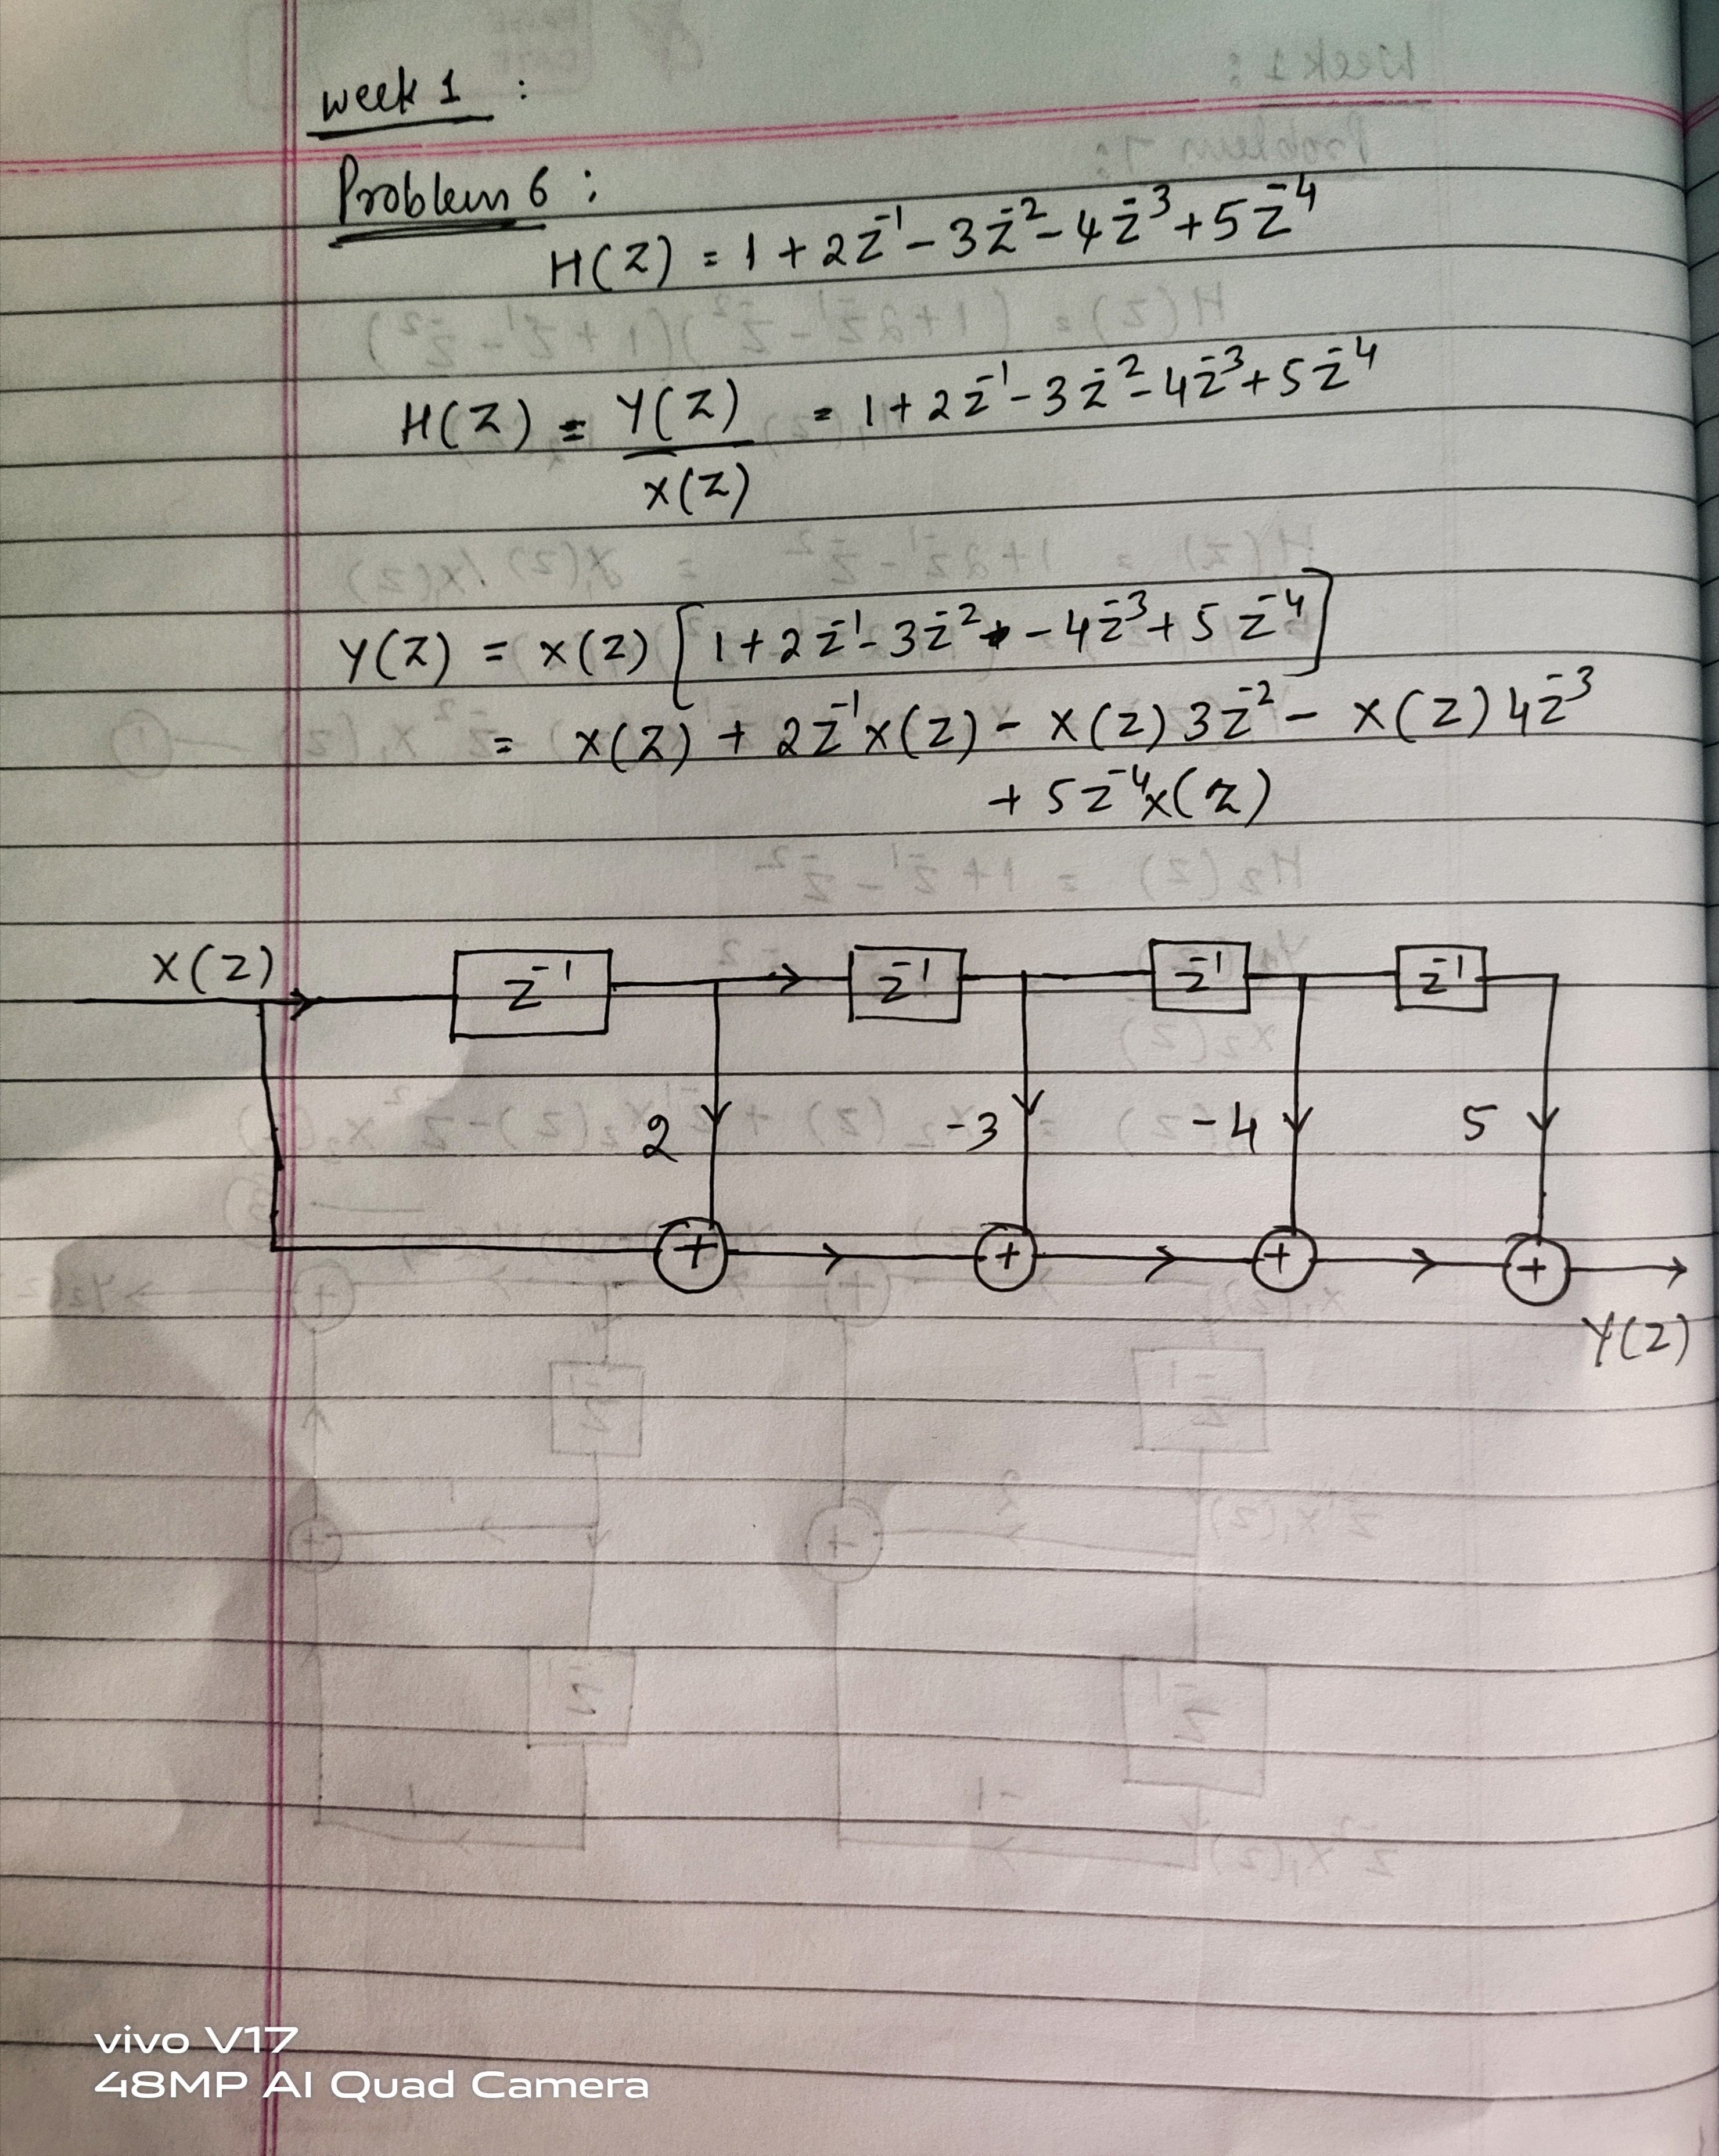 week 1 :
Problem 6 :
H(Z) = 1 + 2z⁻¹ - 3z⁻² - 4z⁻³ + 5z⁻⁴
H(Z) = Y(Z) / X(Z) = 1 + 2z⁻¹ - 3z⁻² - 4z⁻³ + 5z⁻⁴
Y(Z) = X(Z) [ 1 + 2z⁻¹ - 3z⁻² - 4z⁻³ + 5z⁻⁴ ]
= X(Z) + 2z⁻¹X(Z) - X(Z) 3z⁻² - X(Z) 4z⁻³
+ 5z⁻⁴X(Z)
X(Z) z⁻¹ z⁻¹ z⁻¹ z⁻¹
2 -3 -4 5
+ + + +
Y(Z)
vivo V17
48MP AI Quad Camera